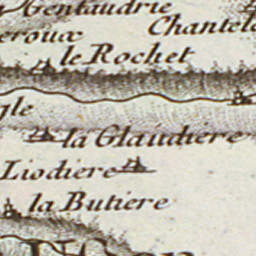 Gentaudrie
Chantel
eroux
le Rochet
gle
la Glaudiere
Liodiere
la Butiere